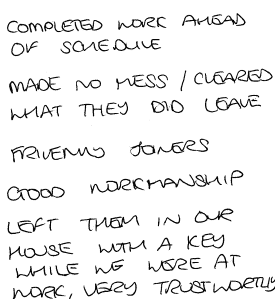 COMPLETED WORK AHEAD
OF SCHEDULE
MADE NO MESS / CLEARED
WHAT THEY DID LEAVE
FRIENDLY JOINERS
GOOD WORKMANSHIP
LEFT THEM IN OUR
HOUSE WITH A KEY
WHILE WE WERE AT
WORK, VERY TRUSTWORTHY